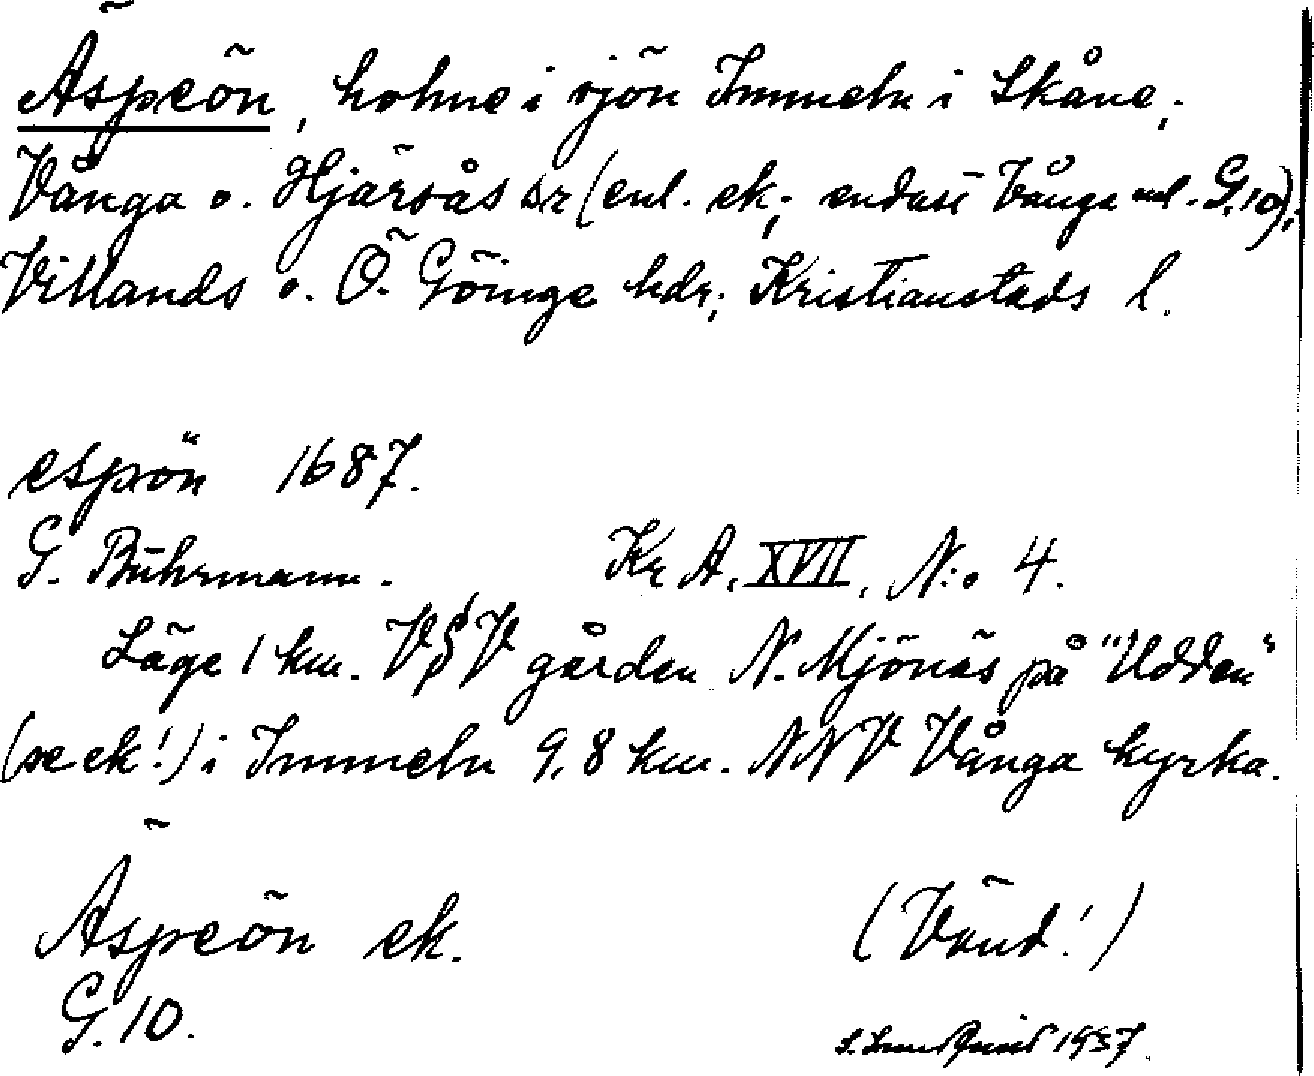 Äspeön, holme i sjön Immeln i Skåne;
Vånga o. Hjärsås sr (enl. ek; endast Vånga enl. G.10);
Villands o. Ö. Göinge hdr; Kristianstads l.
espön 1687.
G. Buhrmann. Kr A. XVII, N:o 4.
Läge 1 km. VSV gården N. Mjönäs på "Udden"
(se ek!) i Immeln 9,8 km. NNV Vånga kyrka.
Äspeön ek. (Vänd!)
G. 10.
1937